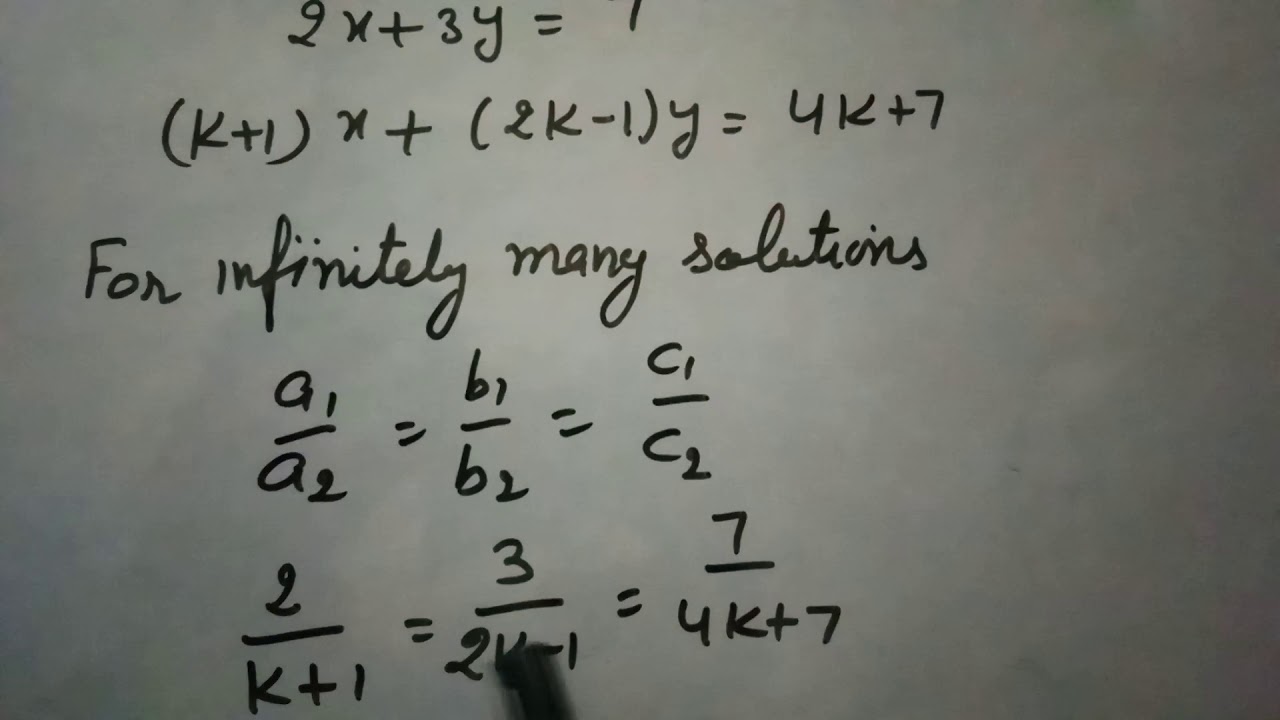 2x+3y = 7
(K+1) x + (2K-1)y = 4K+7
For infinitely many solutions
a₁/a₂ = b₁/b₂ = c₁/c₂
2/K+1 = 3/2K-1 = 7/4K+7